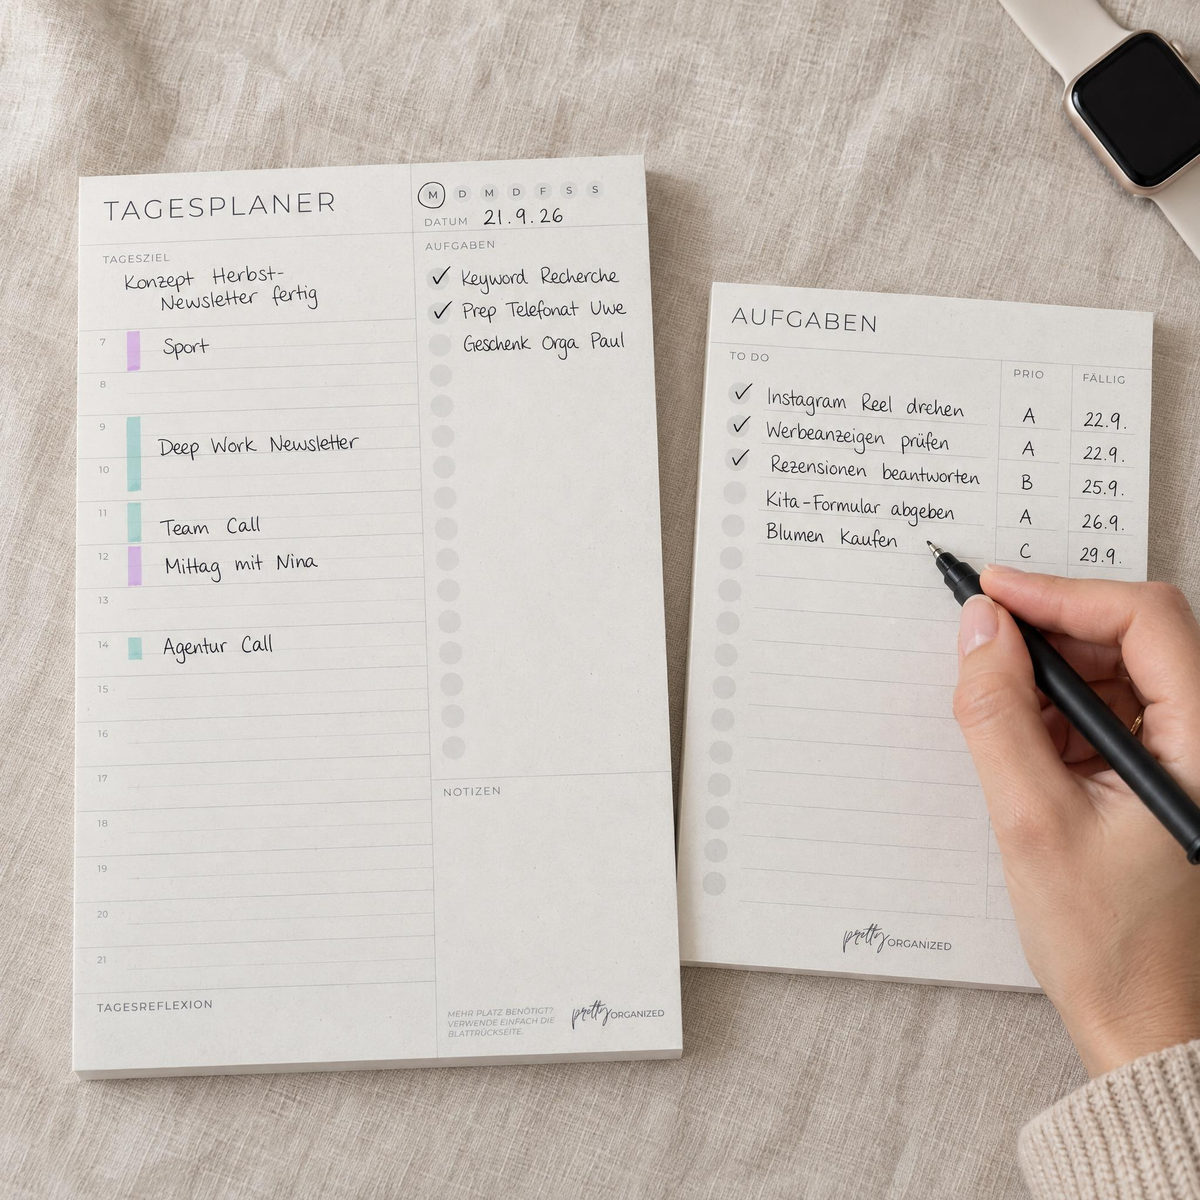 TAGESPLANER
M D M D F S S
DATUM 21.9.26
TAGESZIEL
Konzept Herbst-
Newsletter fertig
7 Sport
8
9
Deep Work Newsletter
10
11 Team Call
12 Mittag mit Nina
13
14 Agentur Call
15
16
17
18
19
20
21
TAGESREFLEXION
AUFGABEN
✓ Keyword Recherche
✓ Prep Telefonat Uwe
Geschenk Orga Paul
NOTIZEN
MEHR PLATZ BENÖTIGT?
VERWENDE EINFACH DIE
BLATTRÜCKSEITE.
pretty ORGANIZED
AUFGABEN
TO DO PRIO FÄLLIG
✓ Instagram Reel drehen A 22.9.
✓ Werbeanzeigen prüfen A 22.9.
✓ Rezensionen beantworten B 25.9.
Kita-Formular abgeben A 26.9.
Blumen kaufen C 29.9.
pretty ORGANIZED